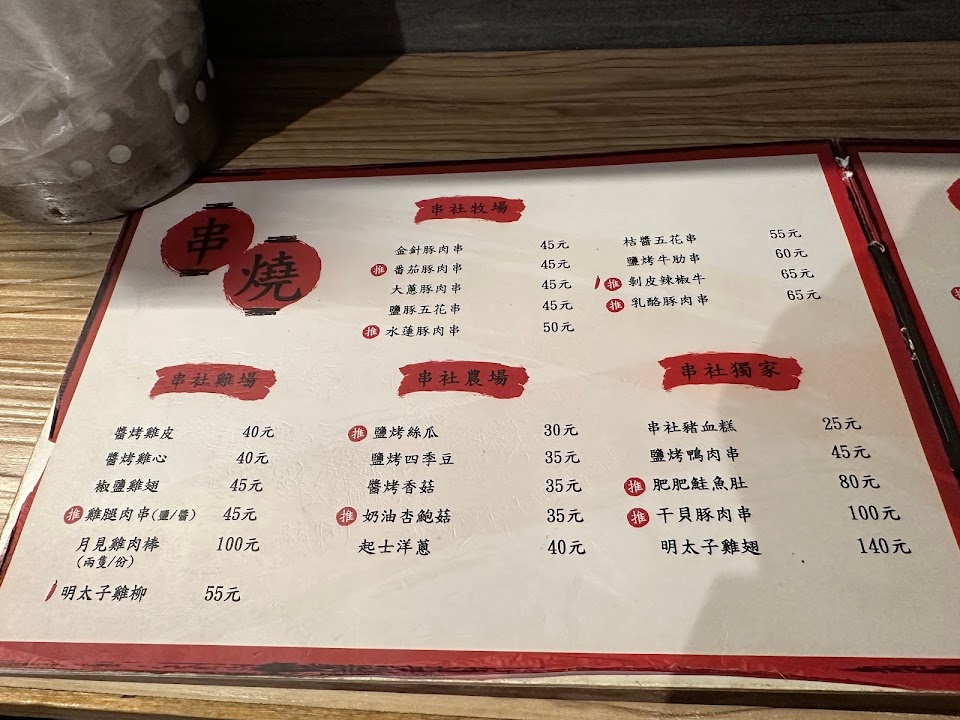 串燒
串社牧場
金針豚肉串 45元
推 番茄豚肉串 45元
大蔥豚肉串 45元
鹽豚五花串 45元
推 水蓮豚肉串 50元
桔醬五花串 55元
鹽烤牛肋串 60元
推 剝皮辣椒牛 65元
推 乳酪豚肉串 65元
串社雞場
醬烤雞皮 40元
醬烤雞心 40元
椒鹽雞翅 45元
推 雞腿肉串(鹽/醬) 45元
月見雞肉棒 100元
(兩隻/份)
明太子雞柳 55元
串社農場
推 鹽烤絲瓜 30元
鹽烤四季豆 35元
醬烤香菇 35元
推 奶油杏鮑菇 35元
起士洋蔥 40元
串社獨家
串社豬血糕 25元
鹽烤鴨肉串 45元
推 肥肥鮭魚肚 80元
推 干貝豚肉串 100元
明太子雞翅 140元